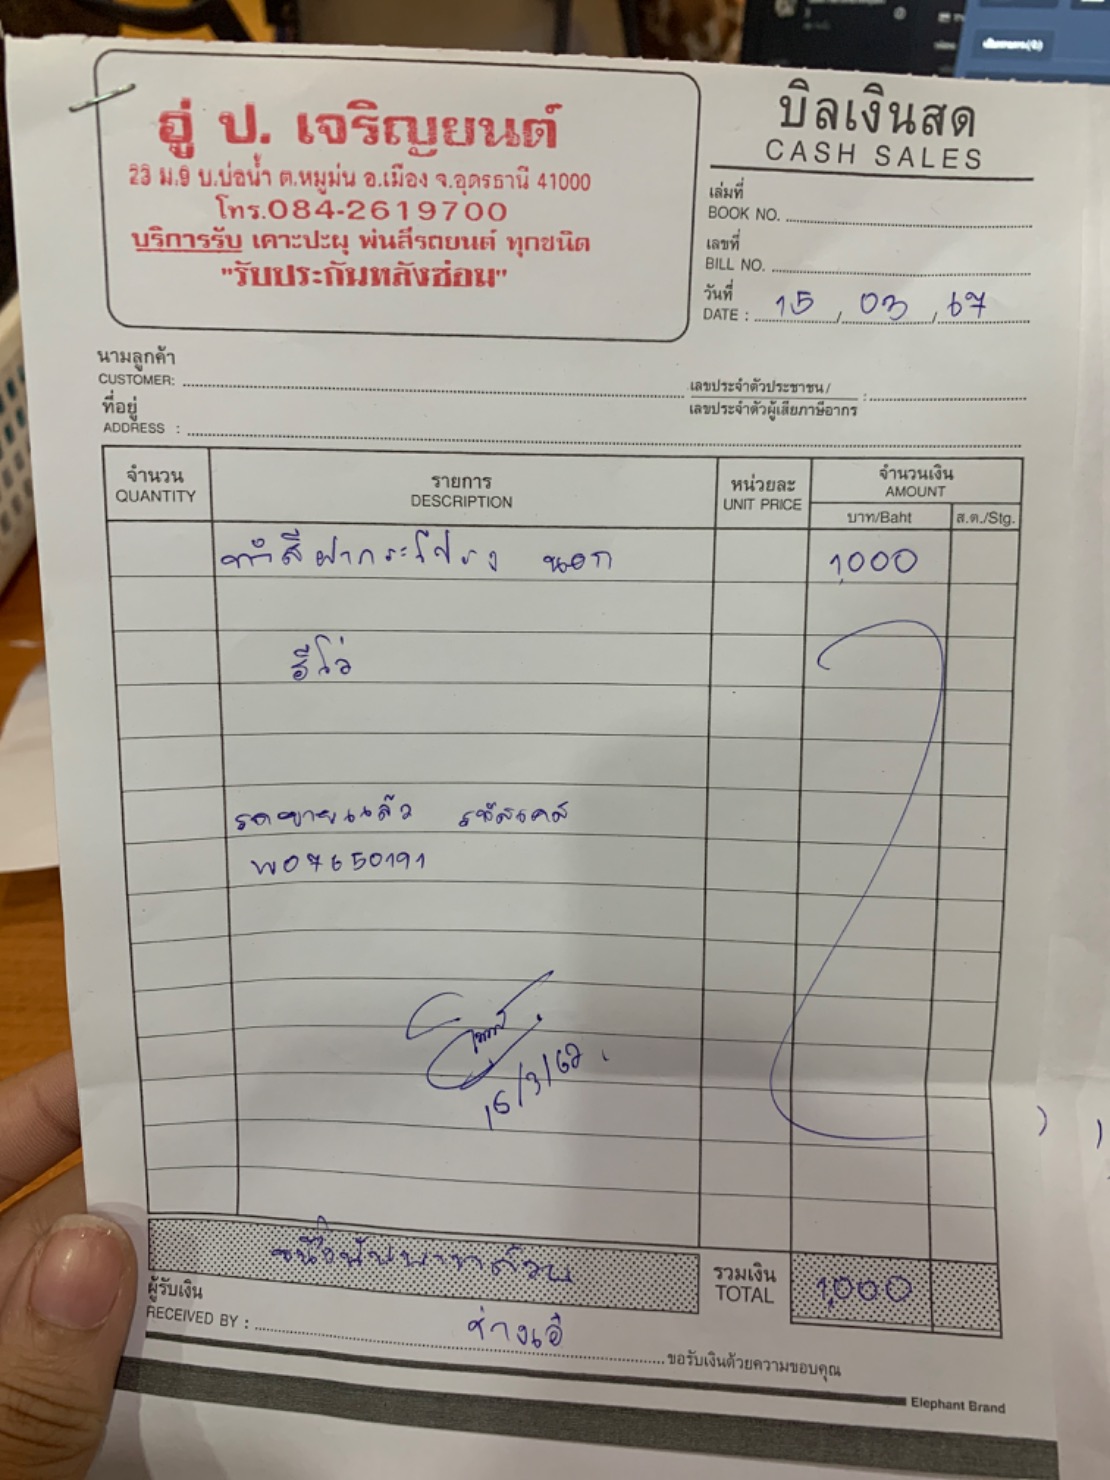 อู่ ป. เจริญยนต์
23 ม.9 บ.บ่อน้ำ ต.หมูม่น อ.เมือง จ.อุดรธานี 41000
โทร.084-2619700
บริการรับ เคาะปะผุ พ่นสีรถยนต์ ทุกชนิด
"รับประกันหลังซ่อม"
บิลเงินสด
CASH SALES
เล่มที่
BOOK NO.
เลขที่
BILL NO.
วันที่
DATE : 15 / 03 / 67
นามลูกค้า
CUSTOMER:
เลขประจำตัวประชาชน /
เลขประจำตัวผู้เสียภาษีอากร :
ที่อยู่
ADDRESS :
จำนวน
QUANTITY
รายการ
DESCRIPTION
หน่วยละ
UNIT PRICE
จำนวนเงิน
AMOUNT
บาท/Baht
ส.ต./Stg.
ทำสีฝากระโปรง นอก 1,000
รีโว่
รถขายแล้ว รหัสเคส
W07650191
15/3/67
หนึ่งพันบาทถ้วน
รวมเงิน
TOTAL
1,000
ผู้รับเงิน
RECEIVED BY : ช่างเอ๋ ขอรับเงินด้วยความขอบคุณ
Elephant Brand